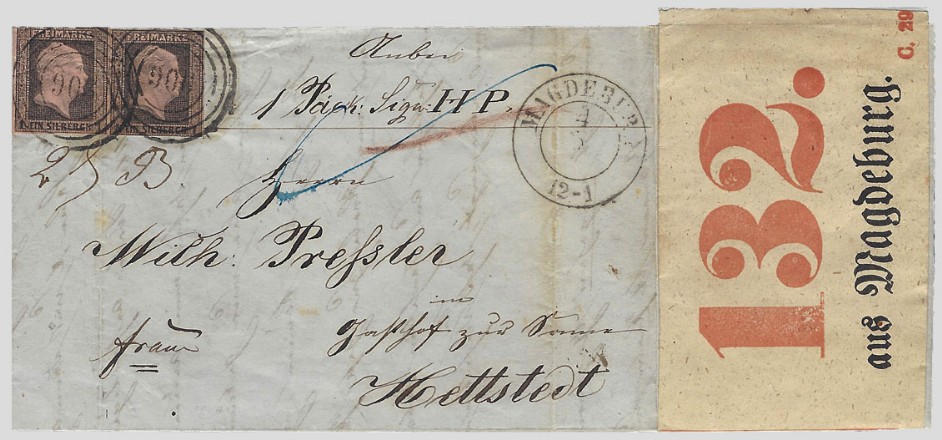 FREIMARKE
FREIMARKE
EIN SILBERGR.
EIN SILBERGR.
Anbei
1 Pack. Sign. HP.
MAGDEBURG
4
12-1
Herrn
Wilh. Preſsler
im
Gasthof zur Sonne
franco
Hettstedt
C. 29
132.
aus Magdeburg.